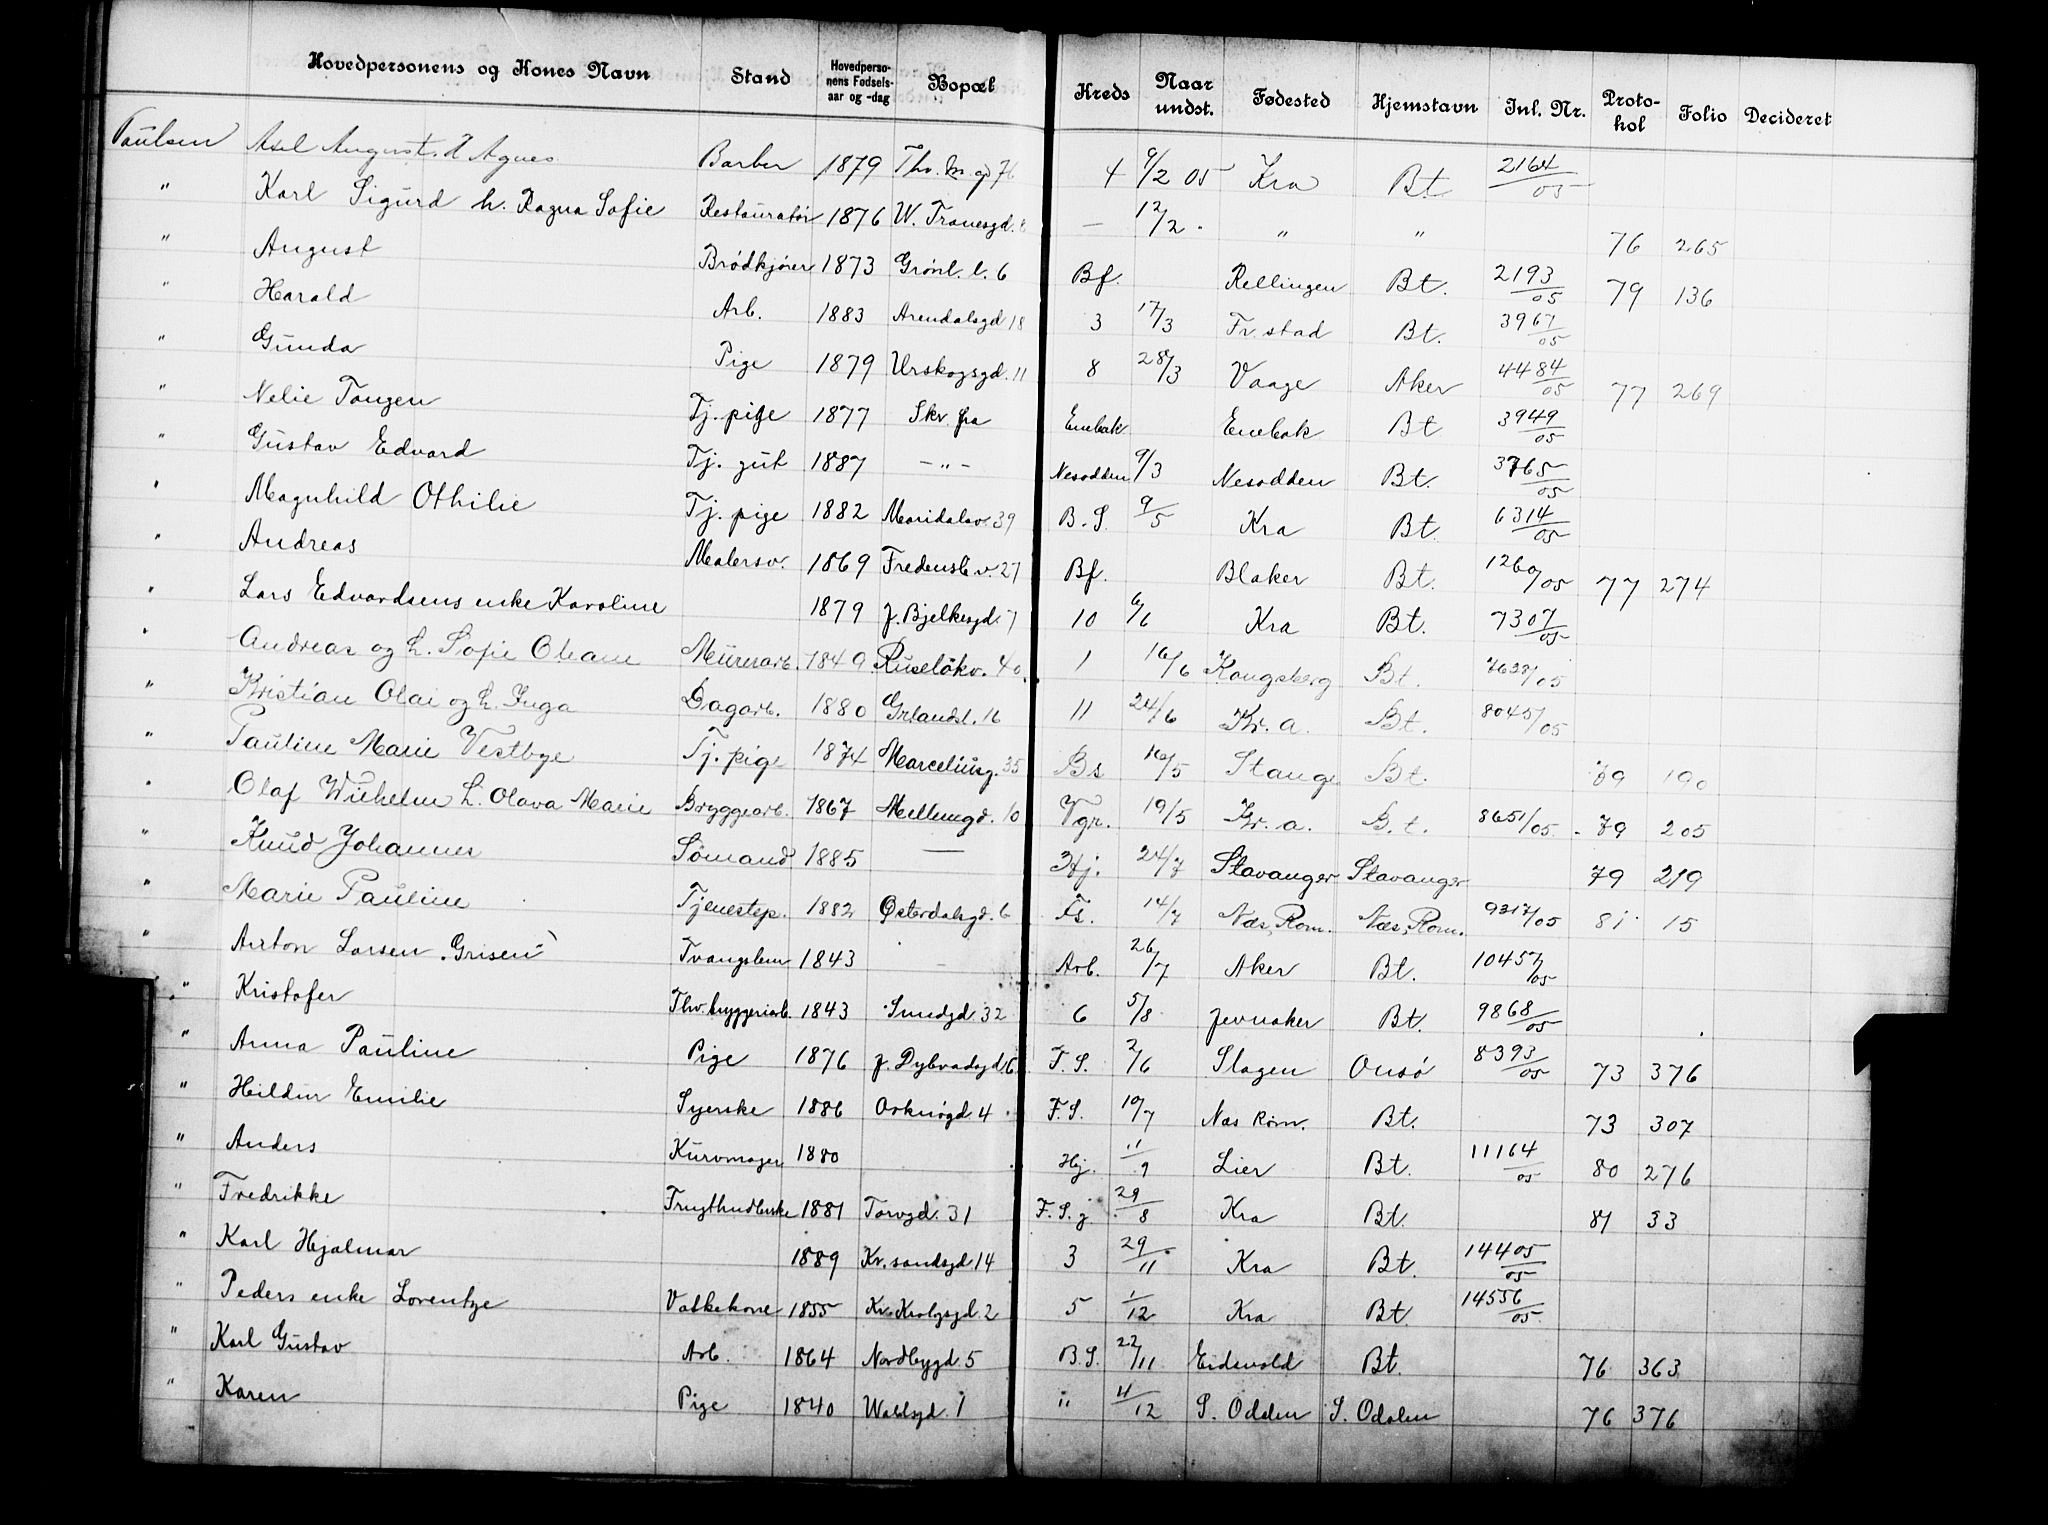 Hovedpersonens og Kones Navn Stand Hovedperso-nens Fødsels-aar og -dag Bopæl Kreds Naar undst. Fødested Hjemstavn Inl. Nr. Proto-kol Folio Decideret
Paulsen Axel August. h Agnes Barber 1879 Thv. M gd 76 4 9/2 05 Kra Bt. 2164/05
" Karl Sigurd h. Ragna Sofie Restauratør 1876 W. Tranesgd. 8 — 12/2 . " " 76 265
" August Brødkjører 1873 Grønl. l. 6 Bf. Rellingen Bt. 2193/05 79 136
" Harald Arb. 1883 Arendalsgd 18 3 17/3 Fr. stad Bt. 3967/05
" Gunda Pige 1879 Urskogsgd. 11 8 28/3 Vaage Aker 4484/05 77 269
" Nelie Tangen Tj. pige 1877 Skr. fra Enebak Enebak Bt 3949/05
" Gustav Edvard Tj. gut 1887 — " — Nesodden 9/3 Nesodden Bt. 3765/05
" Magnhild Othilie Tj. pige 1882 Maridalsv. 39 B. S. 9/5 Kra Bt. 6314/05
" Andreas Malersv. 1869 Fredensb v. 27 Bf. Blaker Bt. 1260/05 77 274
" Lars Edvardsens enke Karoline 1879 J. Bjelkesgd. 7 10 6/6 Kra Bt. 7307/05
" Andreas og h. Sofie Oleane Murerarb. 1849 Ruseløkv. 40. 1 16/6 Kongsberg Bt. 7638/05
" Kristian Olai og h. Inga Dagarb. 1880 Grlandsl. 16 11 24/6 Kr. a. Bt. 8045/05
" Pauline Marie Vestbye Tj. pige 1874 Marceliusg. 35 Bs 16/5 Stange Bt. 79 190
" Olaf Wilhelm h. Olava Marie Bryggearb. 1867 Mellemgd. 10 Vgr. 19/5 Kr. a. B. t. 8651/05. 79 205
" Knud Johannes Sømand 1885 — Hj. 24/7 Stavanger Stavanger 79 219
" Marie Pauline Tjenestep. 1882 Østerdalsgd. 6 Fs. 14/7 Næs, Rom. Næs, Rom. 9317/05 81 15
" Anton Larsen „Grisen" Tvangslem 1843 — Arb. 26/7 Aker Bt. 10457/05
" Kristofer Thv. bryggeriarb. 1843 Smedgd. 32 6 5/8 Jevnaker Bt. 9868/05
" Anna Pauline Pige 1876 J. Dybvadsgd. 6 F. S. 2/6 Slagen Onsø 8393/05 73 376
" Hildur Emilie Syerske 1886 Orknøgd. 4 F. S. 19/7 Næs Rom. Bt. 73 307
" Anders Kurvmager 1880 Hj. 11/9 Lier Bt. 11164/05 80 276
" Fredrikke Frugthandlerske 1881 Torvgd. 31 F. S. j. 29/8 Kra Bt. 81 33
" Karl Hjalmar 1889 Kr. sandsgd 14 3 29/11 Kra Bt. 14405/05
" Peders enke Lorentze Vaskekone 1855 Kr. Krohgsgd. 2 5 1/12 Kra Bt 14556/05
" Karl Gustav Arb. 1864 Nordbygd. 5 B. S. 22/11 Eidsvold Bt. 76 363
" Karen Pige 1840 Wahlsgd. 1 " 4/12 S. Odalen S. Odalen 76 376